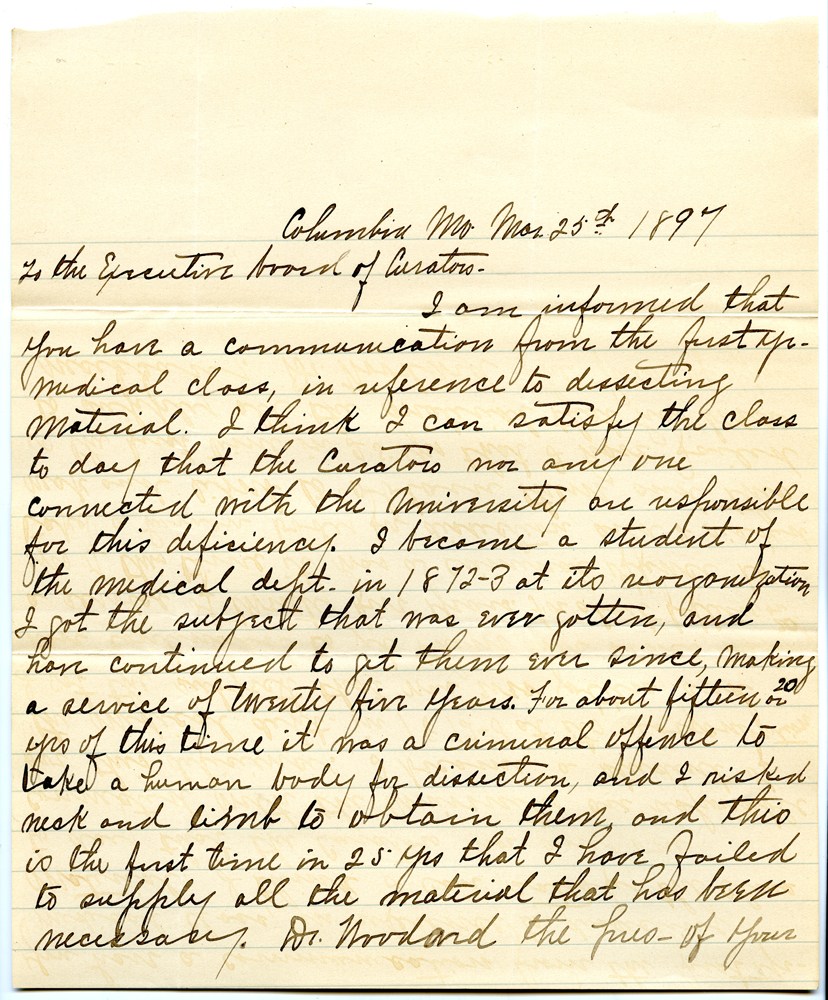 Columbia Mo. Mar. 25th 1897
To the Executive board of Curators-
I am informed that
you have a communication from the first yr-
medical class, in reference to dissecting
material. I think I can satisfy the class
to day that the Curators nor any one
connected with the University are responsible
for this deficiency. I became a student of
the medical dept. in 1872-3 at its reorganization
I got the subject that was ever gotten, and
have continued to get them ever since, making
a service of twenty five years. For about fifteen or 20
yrs of this time it was a criminal offence to
take a human body for dissection, and I risked
neck and limb to obtain them, and this
is the first time in 25 yrs that I have failed
to supply all the material that has been
necessary. Dr. Woodard the pres- of your